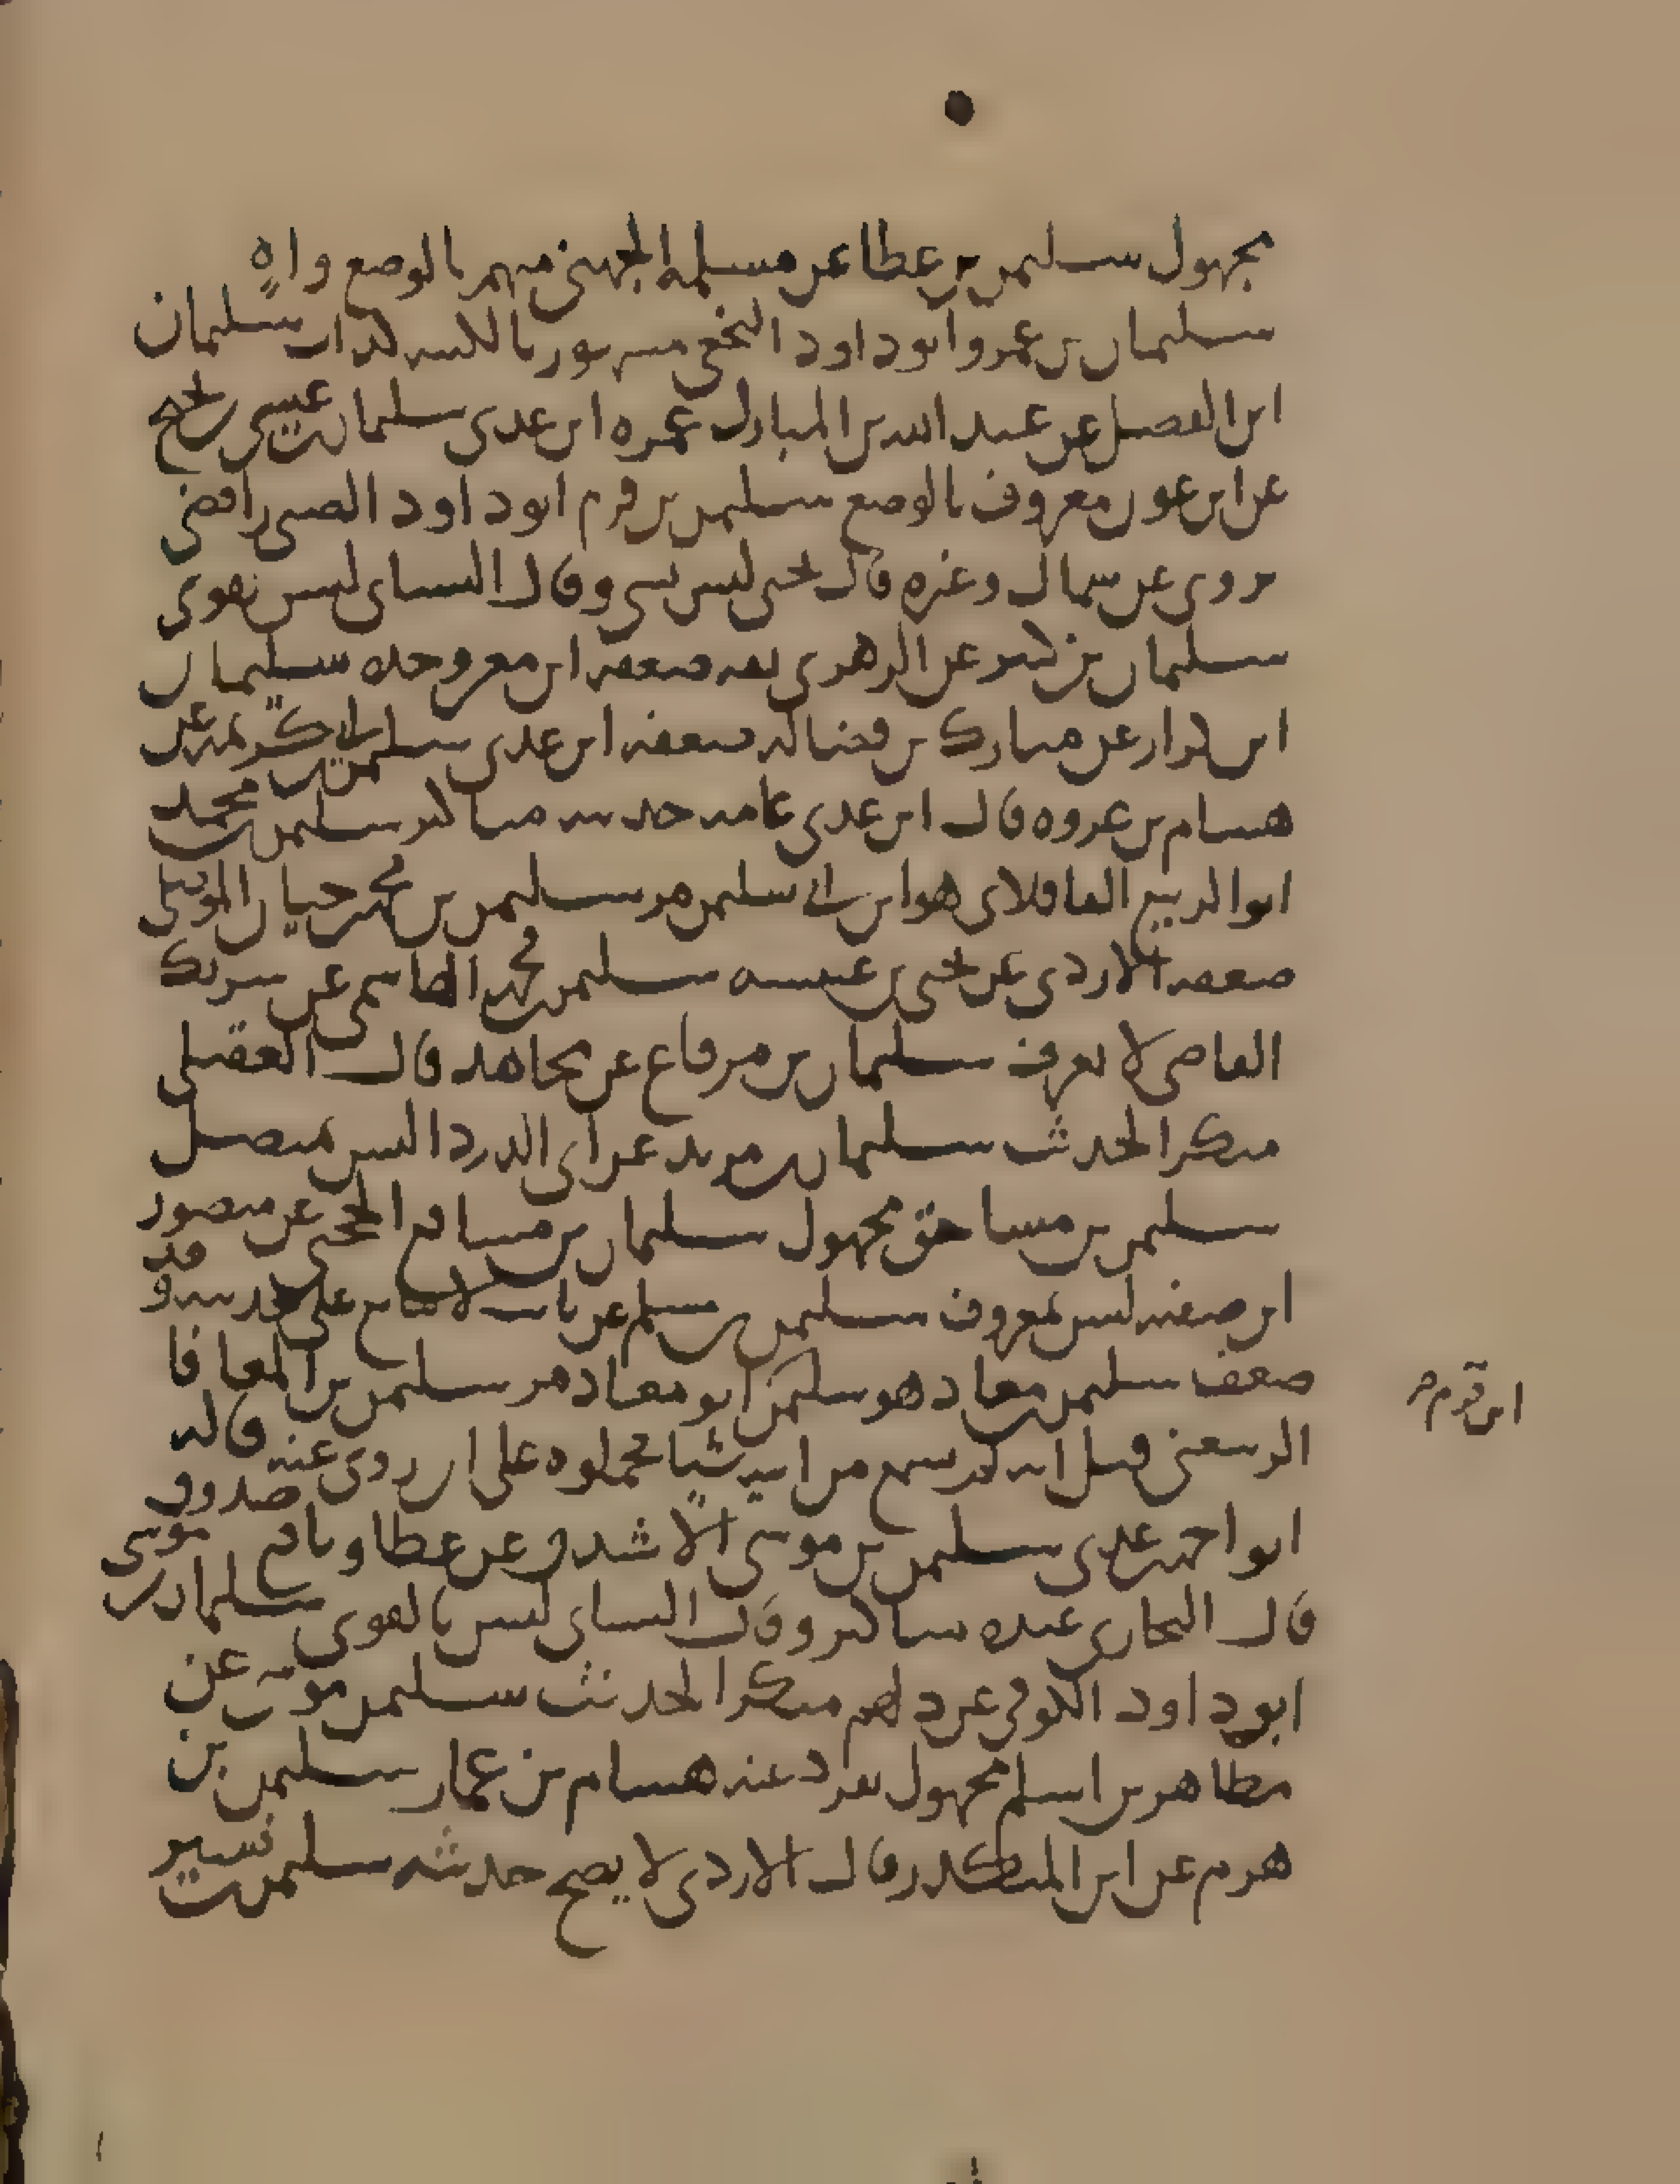 مجهول سليمن بن عطا عن مسلمة الجهني متهم بالوضع واهٍ
سليمان بن عمرو ابو داود النخعي مشهور بالكنية كذاب سليمان
ابن الفضل عن عبد الله بن المبارك غمزه ابن عدي سليمان بن عيسى السجزي
عن ابن عون معروف بالوضع سليمن بن قرم ابو داود الضبي رافضي
يروي عن سماك وغيره قال يحيى ليس بشي وقال النسائي ليس بقوي
سليمان بن كثير عن الزهري ثقة ضعفه ابن معين وحده سليمان
ابن كران عن مبارك بن فضالة ضعفه ابن عدي سليمن بن ابي كريمة عن
هشام بن عروة قال ابن عدي عامة حديثه مناكير سليمن بن محمد
ابو الربيع القافلاي هو ابن ابي سليمن مر سليمن بن محمد بن حيان الموصلي
ضعفه الازدي عن يحيى بن عنبسة سليمن بن محمد الهاشمي عن شريك
القاضي لا يعرف سليمان بن مرقاع عن مجاهد قال العقيلي
منكر الحديث سليمان بن مرثد عن ابي الدردا ليس متصل
سليمن بن مساحق مجهول سليمان بن مسافع الحجبي عن منصور
ابن صفية ليس بمعروف سليمن بن مسلم عن ثابت لا يتابع على حديثه وقد
ضعف سليمن بن معاذ هو سليمن ابو معاذ مر سليمن بن المعافا
الرسعني قيل انه لم يسمع من ابيه شيًا فحملوه على ان روى عنه قاله
ابو احمد بن عدي سليمن بن موسى الاشدق عن عطا ونافع صدوق
قال البخاري عنده مناكير وقال النسائي ليس بالقوي سليمان بن موسى
ابو داود الكوفي عن دلهم منكر الحديث سليمن بن موسى عن
مظاهر بن اسلم مجهول تفرد عنه هشام بن عمار سليمن بن
هرم عن ابن المنكدر قال الازدي لا يصح حديثه سليمن بن نسير
ابن قرم مر